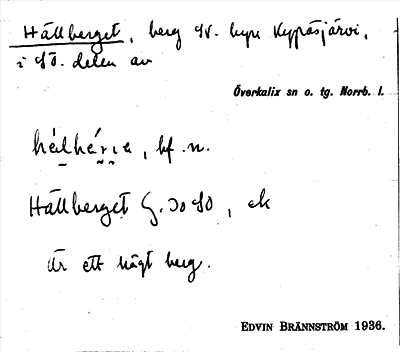 Hällberget, berg SV. byn Kypåsjärvi,
i SÖ. delen av
Överkalix sn o. tg. Norrb. l.
bf. n.
Hällberget G. 30 SO, ek
Är ett högt berg.
EDVIN BRÄNNSTRÖM 1936.